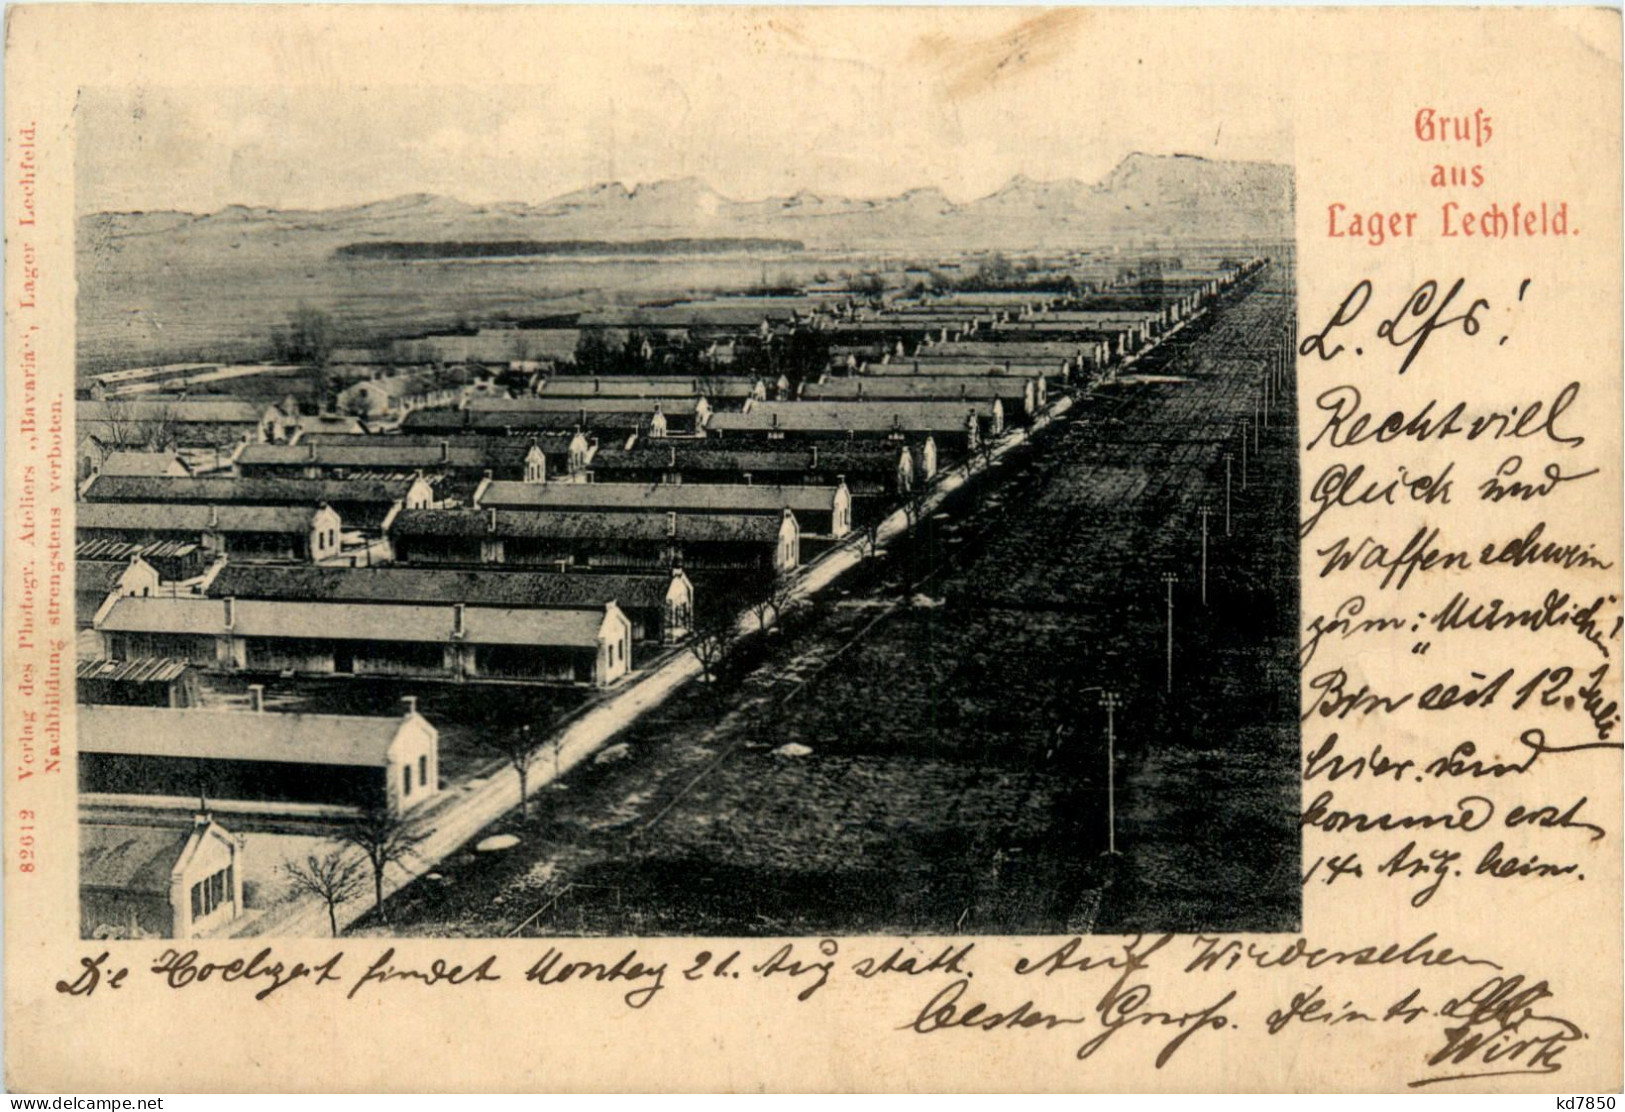 Gruß
aus
Lager Lechfeld.
82612 Verlag des Photogr. Ateliers „Bavaria“, Lager Lechfeld.
Nachbildung strengstens verboten.
L. Lfs!
Recht viel
Glück und
Waffenschwein
zum: "Mündlichen"!
Bin seit 12. Juli
hier. und
komme erst
14. Aug. heim.
Die Hochzeit findet Montag 21. Aug statt. Auf Wiedersehen
besten Gruß. Dein tr.
Wirk
delcampe.net
kd7850